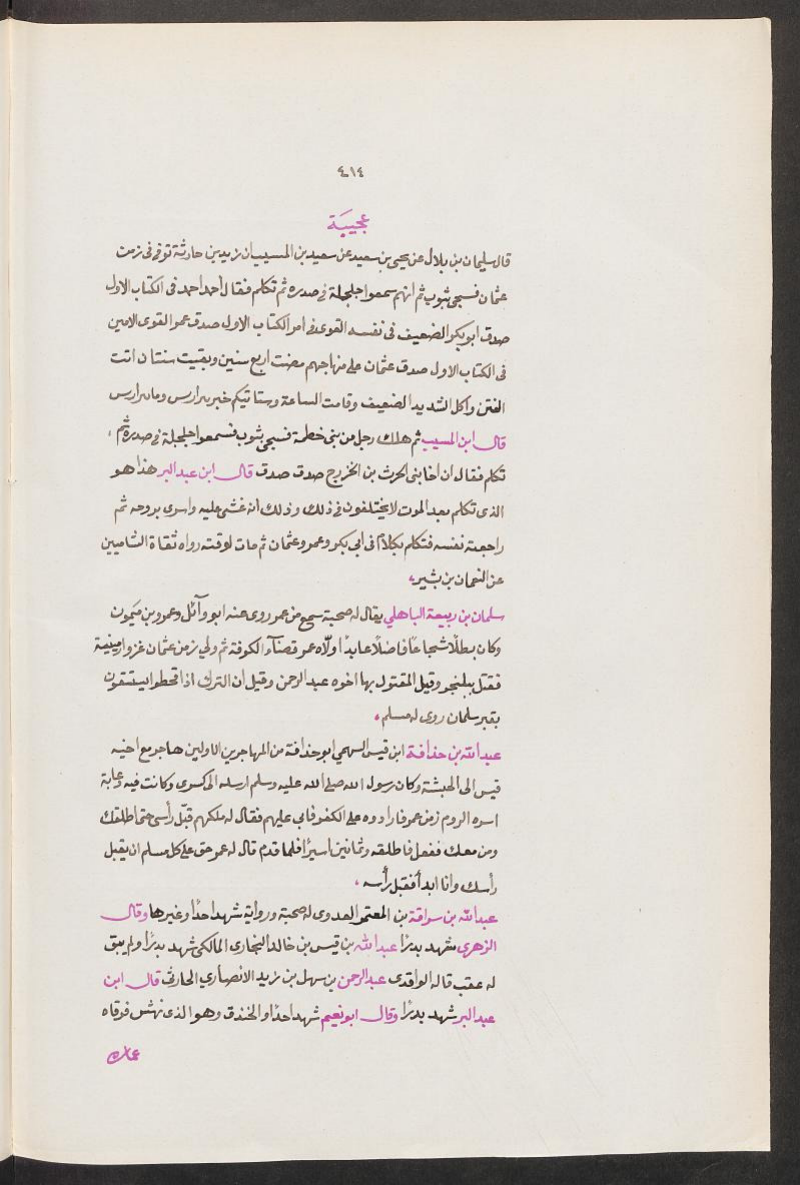 ٤١٤
عجيبة
قال سليمان بن بلال عن يحيى بن سعيد عن سعيد بن المسيب ان زيد بن حارثة توفي في زمن
عثمان فسجي بثوب ثم انهم سمعوا جلجلة في صدره ثم تكلم فقال أحمد احمد في الكتاب الاول
صدق ابو بكر الضعيف في نفسه القوى في امر الكتاب الاول صدق عمر القوى الامين
في الكتاب الاول صدق عثمان على منهاجهم مضت اربع سنين وبقيت سنتان اتت
الفتن واكل الشديد الضعيف وقامت الساعة وستاتيكم خبر بئر ارس وما بئر ارس
قال ابن المسيب ثم هلك رجل من بني خطمة فسجى بثوب فسمعوا جلجلة في صدره ثم
تكلم فقال ان اخا بني الحرث بن الخزرج صدق صدق قال ابن عبد البر هذا هو
الذى تكلم بعد الموت لا يختلفون في ذلك وذلك انه غشى عليه واسرى بروحه ثم
راجعته نفسه فتكلم بكلام فى ابي بكر وعمر وعثمان ثم مات لوقته رواه ثقاة الشاميين
عن النعمان بن بشير
سلمان بن ربيعة الباهلي يقال له صحبة سمع من عمر روى عنه ابو وآئل وعمرو بن ميمون
وكان بطلًا شجاعًا فاضلًا عابدًا ولّاه عمر قضآء الكوفة ثم ولي زمن عثمان غزو ارمينية
فقتل ببلنجر وقيل المقتول بها اخوه عبد الرحمن وقيل ان الترك اذا قحطوا يستسقون
بقبر سلمان روى له مسلم
عبد الله بن حذافة ابن قيس السهمي ابو حذافة من المهاجرين الاولين هاجر مع اخيه
قيس الى الحبشة وكان رسول الله صلى الله عليه وسلم ارسله الى كسرى وكانت فيه دعابة
اسره الروم زمن عمر فارادوه على الكفر فابى عليهم فقال له ملكهم قبّل رأسى حتى اطلقك
ومن معك ففعل فاطلقه وثمانين اسيرًا فلما قدم قال له عمر حق على كل مسلم ان يقبل
رأسك وانا ابدأ فقبل رأسه
عبد الله بن سراقة بن المعتمر العدوى له صحبة ورواية شهد احدًا وغيرها وقال
الزهرى شهد بدرًا عبد الله بن قيس بن خالد النجارى المالكى شهد بدرًا ولم يبق
له عقب قاله الواقدى عبد الرحمن بن سهل بن زيد الانصاري الحارثى قال ابن
عبد البر شهد بدرًا وقال ابو نعيم شهد احدًا والخندق وهو الذى نهش فرقاه
عماره